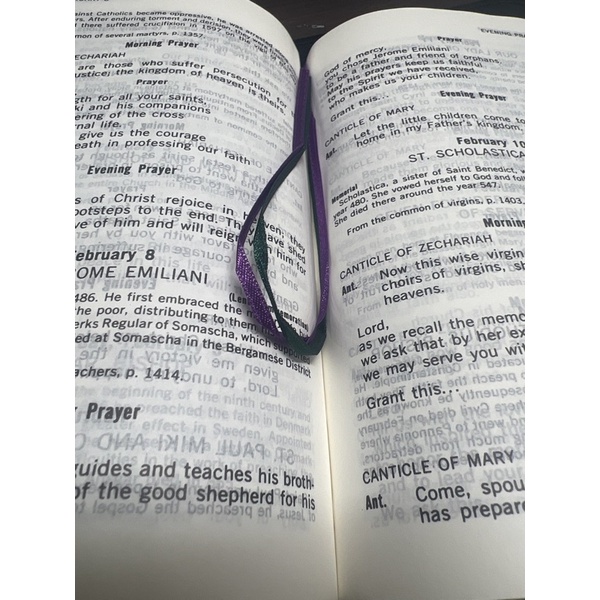 ainst Catholics became oppressive, he was arrested
ers. After enduring torment and derision
there suffered crucifixion in 1597
on of several martyrs, p. 1357.
Morning Prayer
ZECHARIAH
are those who suffer persecution for
justice; the kingdom of heaven is theirs.
Prayer
gth for all your saints,
ki and his companions
ering of the cross
rnal life.
give us the courage
eath in professing our faith
Evening Prayer
s of Christ rejoice in heaven; they
ootsteps to the end. They have shed
ve of him and will reign with him for
ebruary 8
OME EMILIANI
486. He first embraced the
(Lent: Commemoration)
the poor, distributing to them
erks Regular of Somascha, which supported
ed at Somascha in the Bergamese District
achers, p. 1414.
g Prayer
guides and teaches his broth-
of the good shepherd for his
EVENING PRA
Prayer
God of mercy,
God chose Jerome Emiliani
to be a father and friend of orphans.
May his prayers keep us faithful
to the Spirit we have received,
who makes us your children.
Grant this...
Evening Prayer
CANTICLE OF MARY
Ant. Let the little children come to
home in my Father's kingdom.
February 10
ST. SCHOLASTICA
Memorial
Scholastica, a sister of Saint Benedict, w
year 480. She vowed herself to God and foll
She died there around the year 547.
From the common of virgins, p. 1403,
Morning
CANTICLE OF ZECHARIAH
Ant. Now this wise virgin
choirs of virgins, sh
heavens.
Lord,
as we recall the memo
we ask that by her ex
we may serve you wit
Grant this...
CANTICLE OF MARY
Ant. Come, spou
has prepare